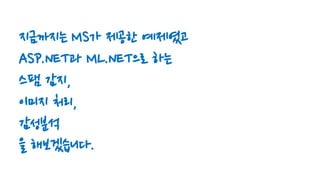 지금까지는 MS가 제공한 예제였고
ASP.NET과 ML.NET으로 하는
스팸 감지,
이미지 처리,
감성분석
을 해보겠습니다.